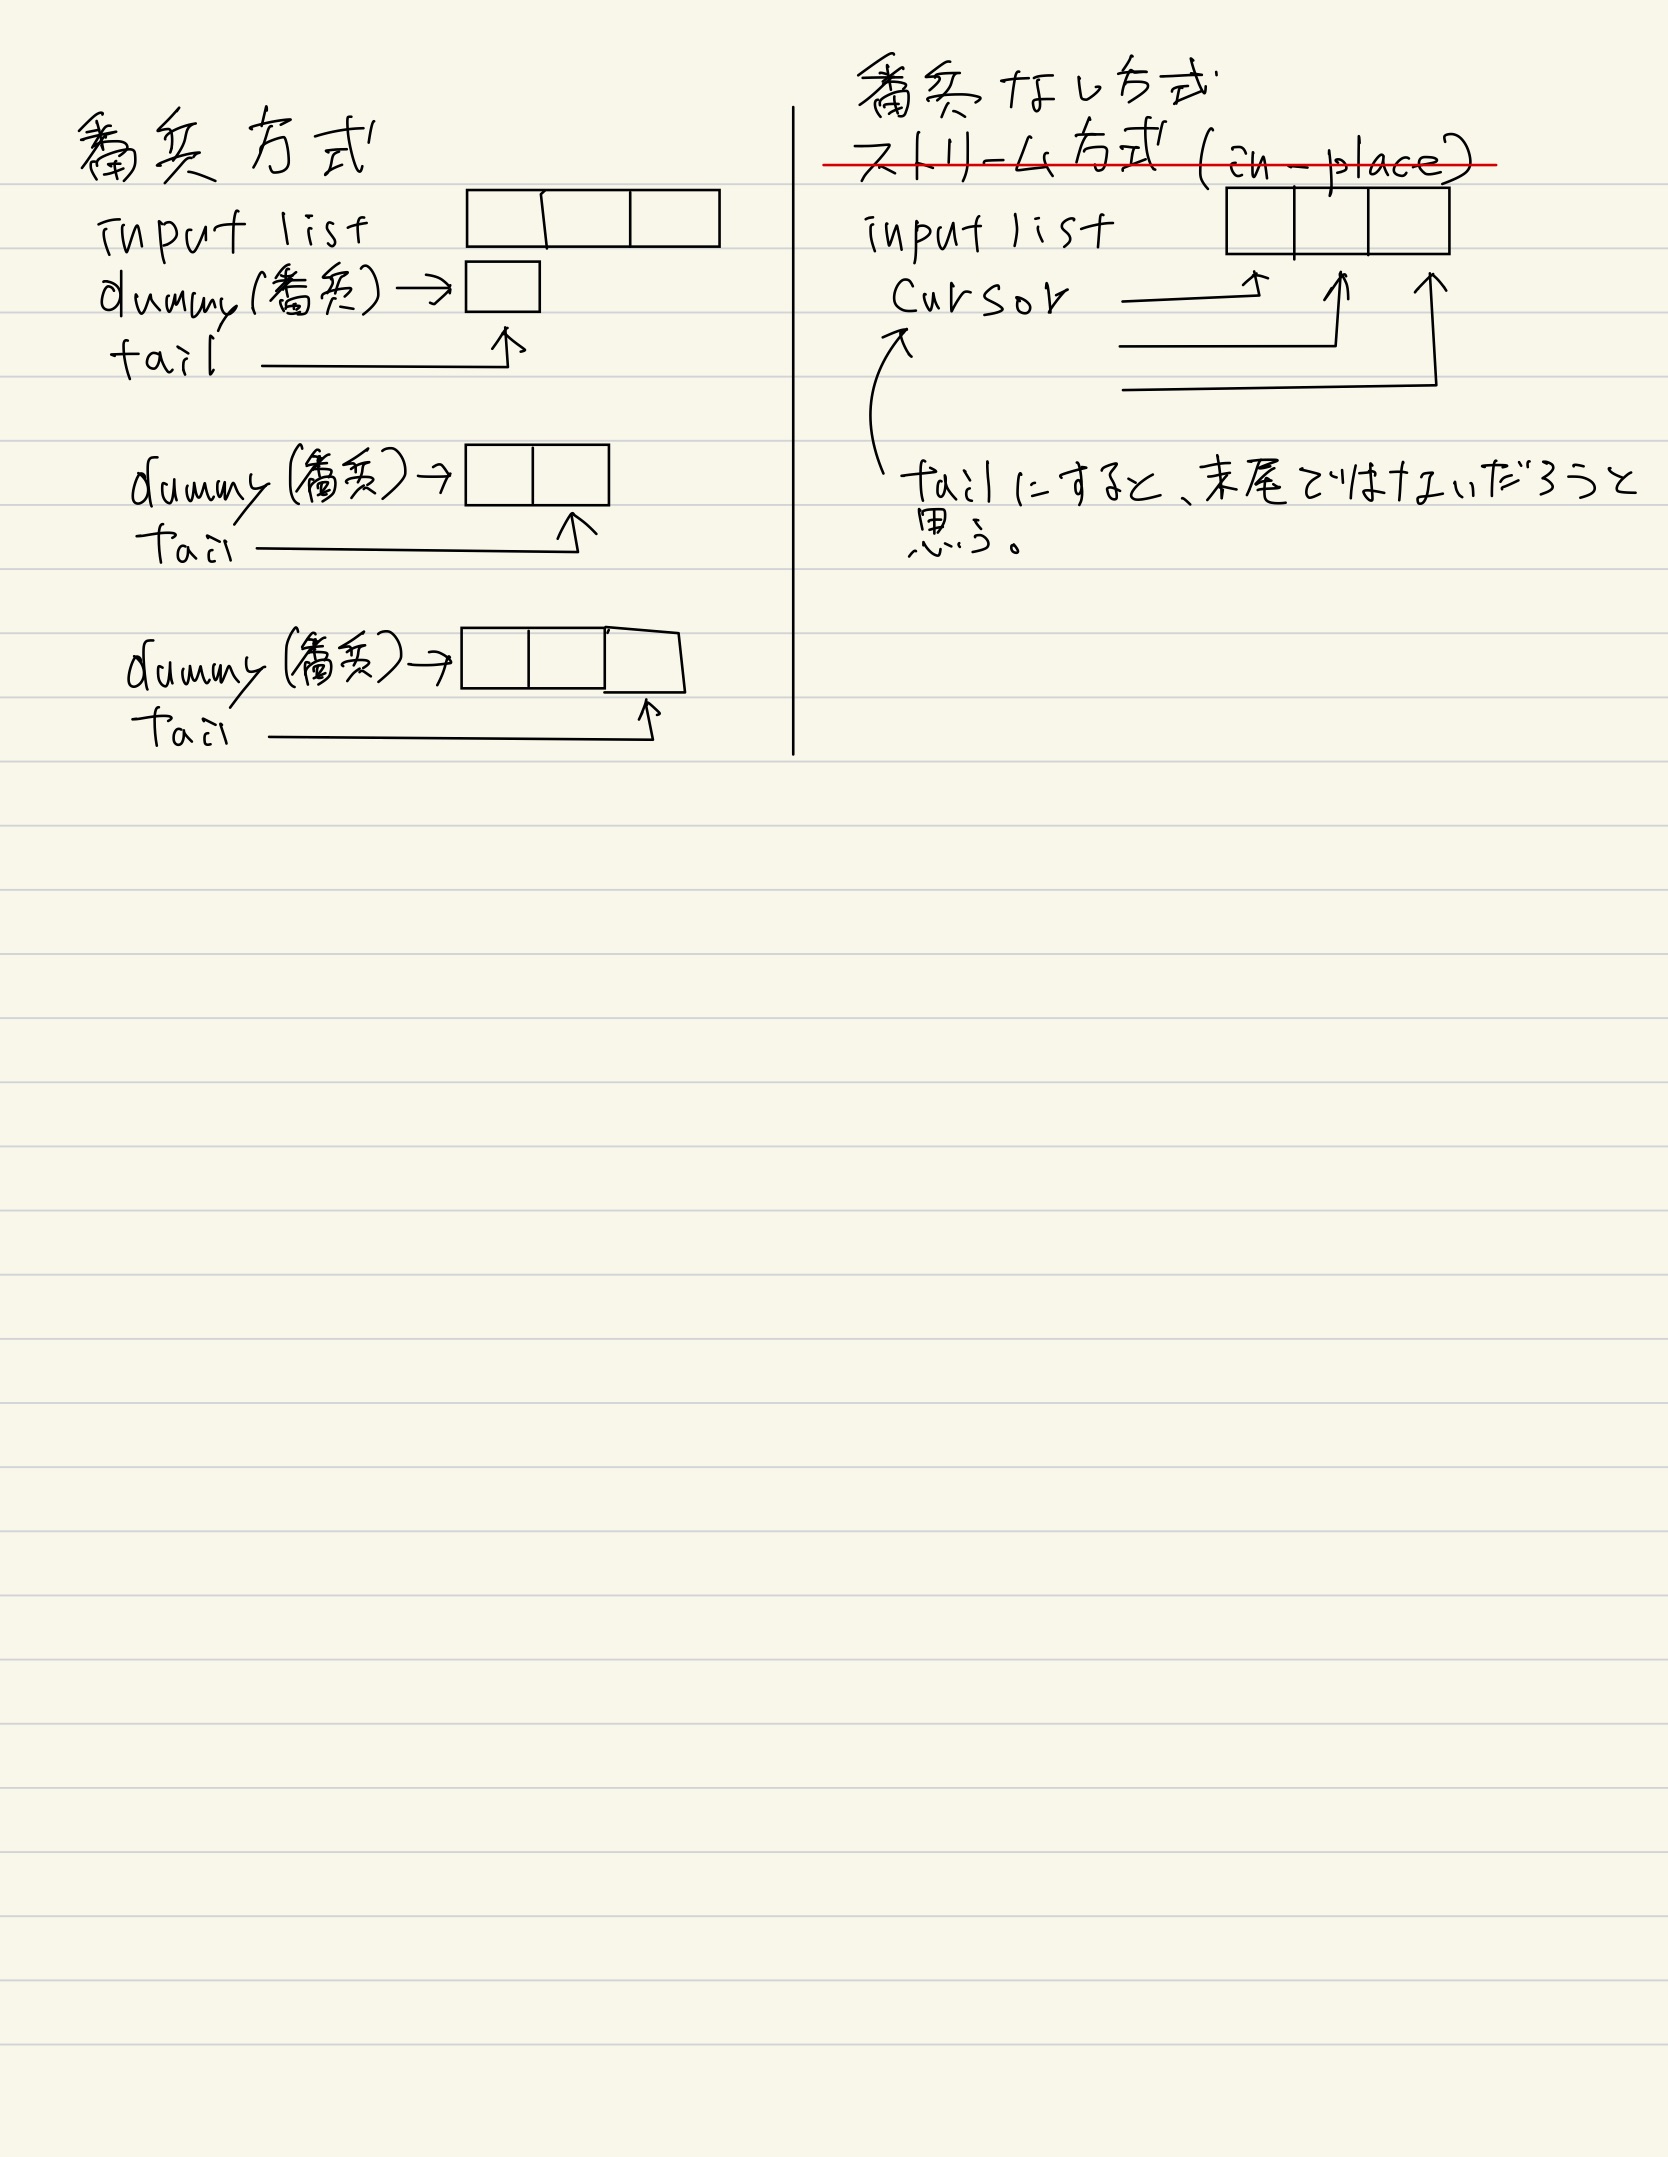 番兵方式
input list
dummy(番兵)→
tail
dummy(番兵)→
tail
dummy(番兵)→
tail
番兵なし方式
ストリーム方式(in-place)
input list
cursor
tailにすると、末尾ではないだろうと
思う。